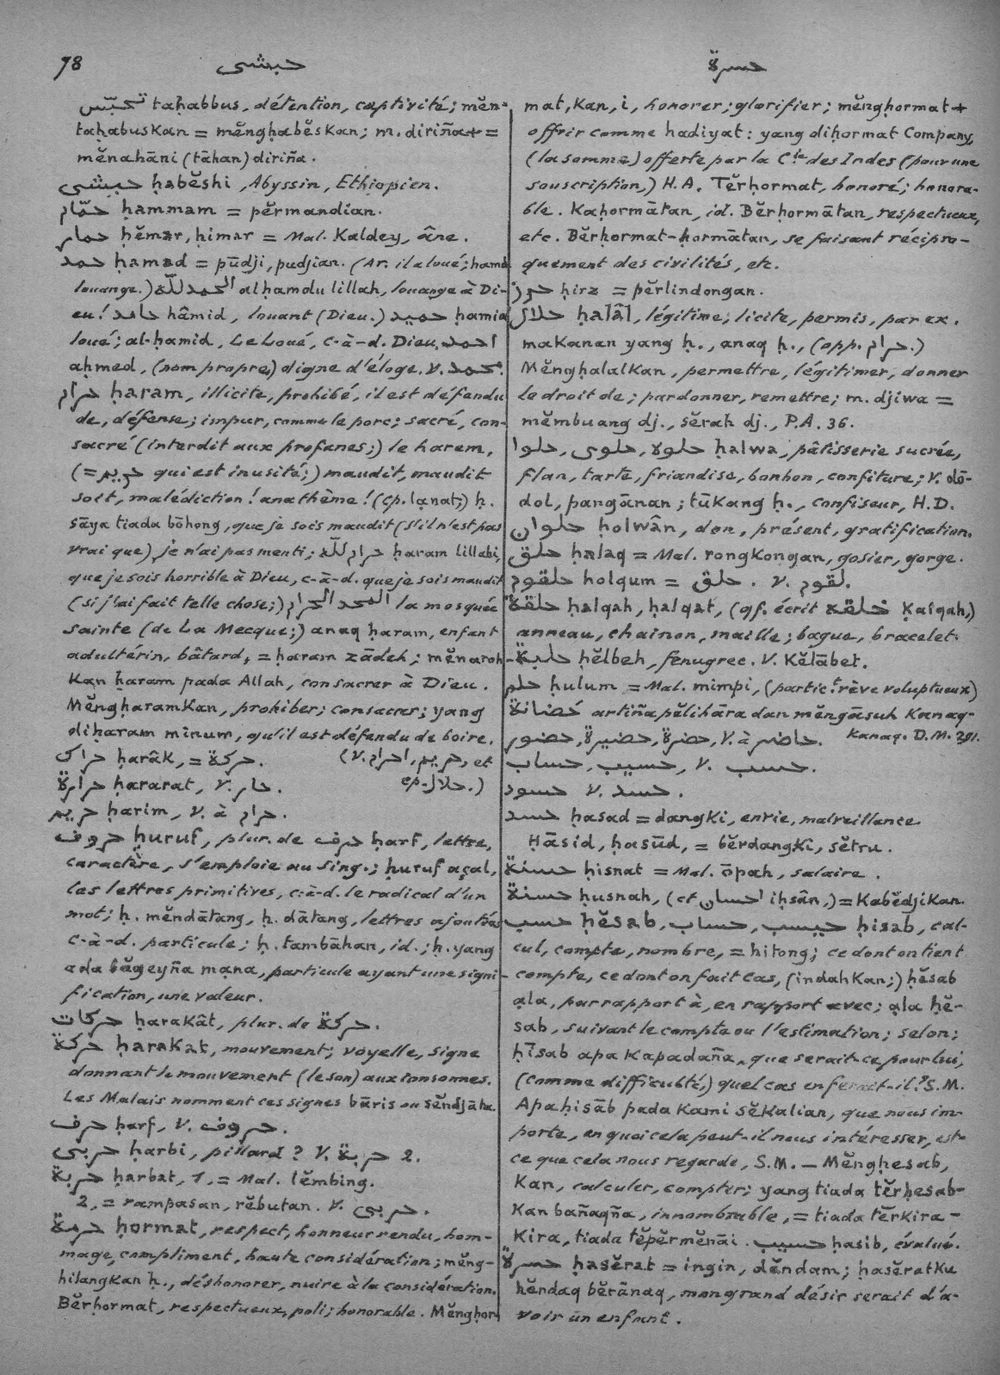 78
حبشي
حسرة
تحبّس taḥabbus, détention, captivité; mĕn-
taḥabuskan = mĕngḥabĕskan; m. diriña + =
mĕnahāni (tāhan) diriña.
حبشي ḥabĕshi, Abyssin, Ethiopien.
حمّام ḥammam = pĕrmandian.
حمار ḥĕmar, ḥimar = Mal. Kaldey, âne.
حمد ḥamad = pūdji, pudjian. (Ar. il a loué; hamd
louange.) الحمد لله alḥamdu lillah, louange à Di-
eu! حامد hâmid, louant (Dieu.) حميد ḥamid
loué; al-ḥamid, Le Loué, c-à-d. Dieu, احمد
aḥmed, (nom propre,) digne d'éloge. V. محمد.
حرام ḥaram, illicite, prohibé, il est défendu
de, défense; impur, comme le porc; sacré, con-
sacré (interdit aux profanes;) le harem,
(= حريم qui est inusité;) maudit, maudit
soit, malédiction! anathème! (Cp. lạnat;) ḥ.
sāya tiada bōhong, que je sois maudit (s'il n'est pas
vrai que) je n'ai pas menti; حرام لله ḥaram lillahi,
que je sois horrible à Dieu, c-à-d. que je sois maudit
(si j'ai fait telle chose;) المسجد الحرام la mosquée
sainte (de La Mecque;) anaq ḥaram, enfant
adultérin, bâtard, = ḥaram zādeh; mĕnaroh-
kan ḥaram pada Allah, consacrer à Dieu.
Mĕngḥaramkan, prohiber; consacrer; yang
diḥaram minum, qu'il est défendu de boire.
حراك ḥarâk, = حركة. (V. حريم, احرام, et
حرارة ḥararat, V. حار. cp. حلال.)
حريم ḥarim, V. à حرام.
حروف ḥuruf, plur. de حرف ḥarf, lettre,
caractère, s'emploie au sing.; ḥuruf açal,
les lettres primitives, c.-à-d. le radical d'un
mot; ḥ. mĕndātang, ḥ. dātang, lettres ajoutées
c-à-d. particule; ḥ. tambāhan, id.; ḥ. yang
ada bāgeyña mana, particule ayant une signi-
fication, une valeur.
حركات ḥarakât, plur. de حركة.
حركة ḥarakat, mouvement; voyelle, signe
donnant le mouvement (le son) aux consonnes.
Les Malais nomment ces signes bāris ou sĕndjāta.
حرف ḥarf, V. حروف.
حربي ḥarbi, pillard? V. حربة 2.
حربة ḥarbat, 1, = Mal. lĕmbing.
2, = rampasan, rĕbutan. V. حربي.
حرمة ḥormat, respect, honneur rendu, hom-
mage, compliment, haute considération; mĕng-
hilangkan ḥ., déshonorer, nuire à la considération.
Bĕrḥormat, respectueux, poli; honorable. Mĕngḥor-
mat, kan, i, honorer; glorifier; mĕngḥormat +
offrir comme hadiyat: yang diḥormat Company,
(la somme) offerte par la Cie des Indes (pour une
souscription,) H.A. Tĕrḥormat, honoré; honora-
ble. Kaḥormātan, id. Bĕrḥormātan, respectueux,
etc. Bĕrḥormat-ḥormātan, se faisant récipro-
quement des civilités, etc.
حرز ḥirz = pĕrlindongan.
حلال ḥalâl, légitime; licite, permis, par ex.
makanan yang ḥ., anaq ḥ., (opp. حرام.)
Mĕngḥalalkan, permettre, légitimer, donner
le droit de; pardonner, remettre; m. djiwa =
mĕmbuang dj., sĕrah dj., P.A. 36.
حلوا, حلوى, حلوة ḥalwa, pâtisserie sucrée,
flan, tarte, friandise, bonbon, confiture; V. dō-
dol, pangānan; tūkang ḥ., confiseur, H.D.
حلوان ḥolwân, don, présent, gratification.
حلق ḥalaq = Mal. rongkongan, gosier, gorge.
حلقوم holqum = حلق. V. لقوم.
حلقة ḥalqah, ḥalqat, (qf. écrit خلقه ḳalqah,)
anneau, chainon, maille; bague, bracelet.
حلبة ḥĕlbeh, fenugrec. V. Kĕlābet.
حلم ḥulum = Mal. mimpi, (particᵗ. rêve voluptueux)
حضانة artiña pĕlihāra dan mĕngāsuh kanaq-
kanaq. D.M. 291.
حضور, حضيرة, حضرة, V. à حاضر.
حساب, حسيب, V. حسب.
حسود V. حسد.
حسد ḥasad = dangki, envie, malveillance.
Ḥāsid, ḥasūd, = bĕrdangki, sĕtru.
حسنة ḥisnat = Mal. ōpah, salaire.
حسنة ḥusnah, (et احسان iḥsân,) = Kabĕdjikan.
حسب ḥĕsab, حساب, حيسب ḥisab, cal-
cul, compte, nombre, = hitong; ce dont on tient
compte, ce dont on fait cas, (indahkan;) ḥĕsab
ạla, par rapport à, en rapport avec; ạla ḥĕ-
sab, suivant le compte ou l'estimation; selon;
ḥīsab apa kapadaña, que serait-ce pour lui,
(comme difficulté,) quel cas en ferait-il? S.M.
Apa ḥisāb pada kami sĕkalian, que nous im-
porte, en quoi cela peut-il nous intéresser, est-
ce que cela nous regarde, S.M. — Mĕngḥesab,
kan, calculer, compter; yang tiada tĕrḥesab-
kan bañaqña, innombrable, = tiada tĕrkira-
kira, tiada tĕpĕrmĕnāi. حسيب ḥasib, évalué.
حسرة ḥasĕrat = ingin, dĕndam; ḥasĕratku
hĕndaq bĕrānaq, mon grand désir serait d'a-
voir un enfant.